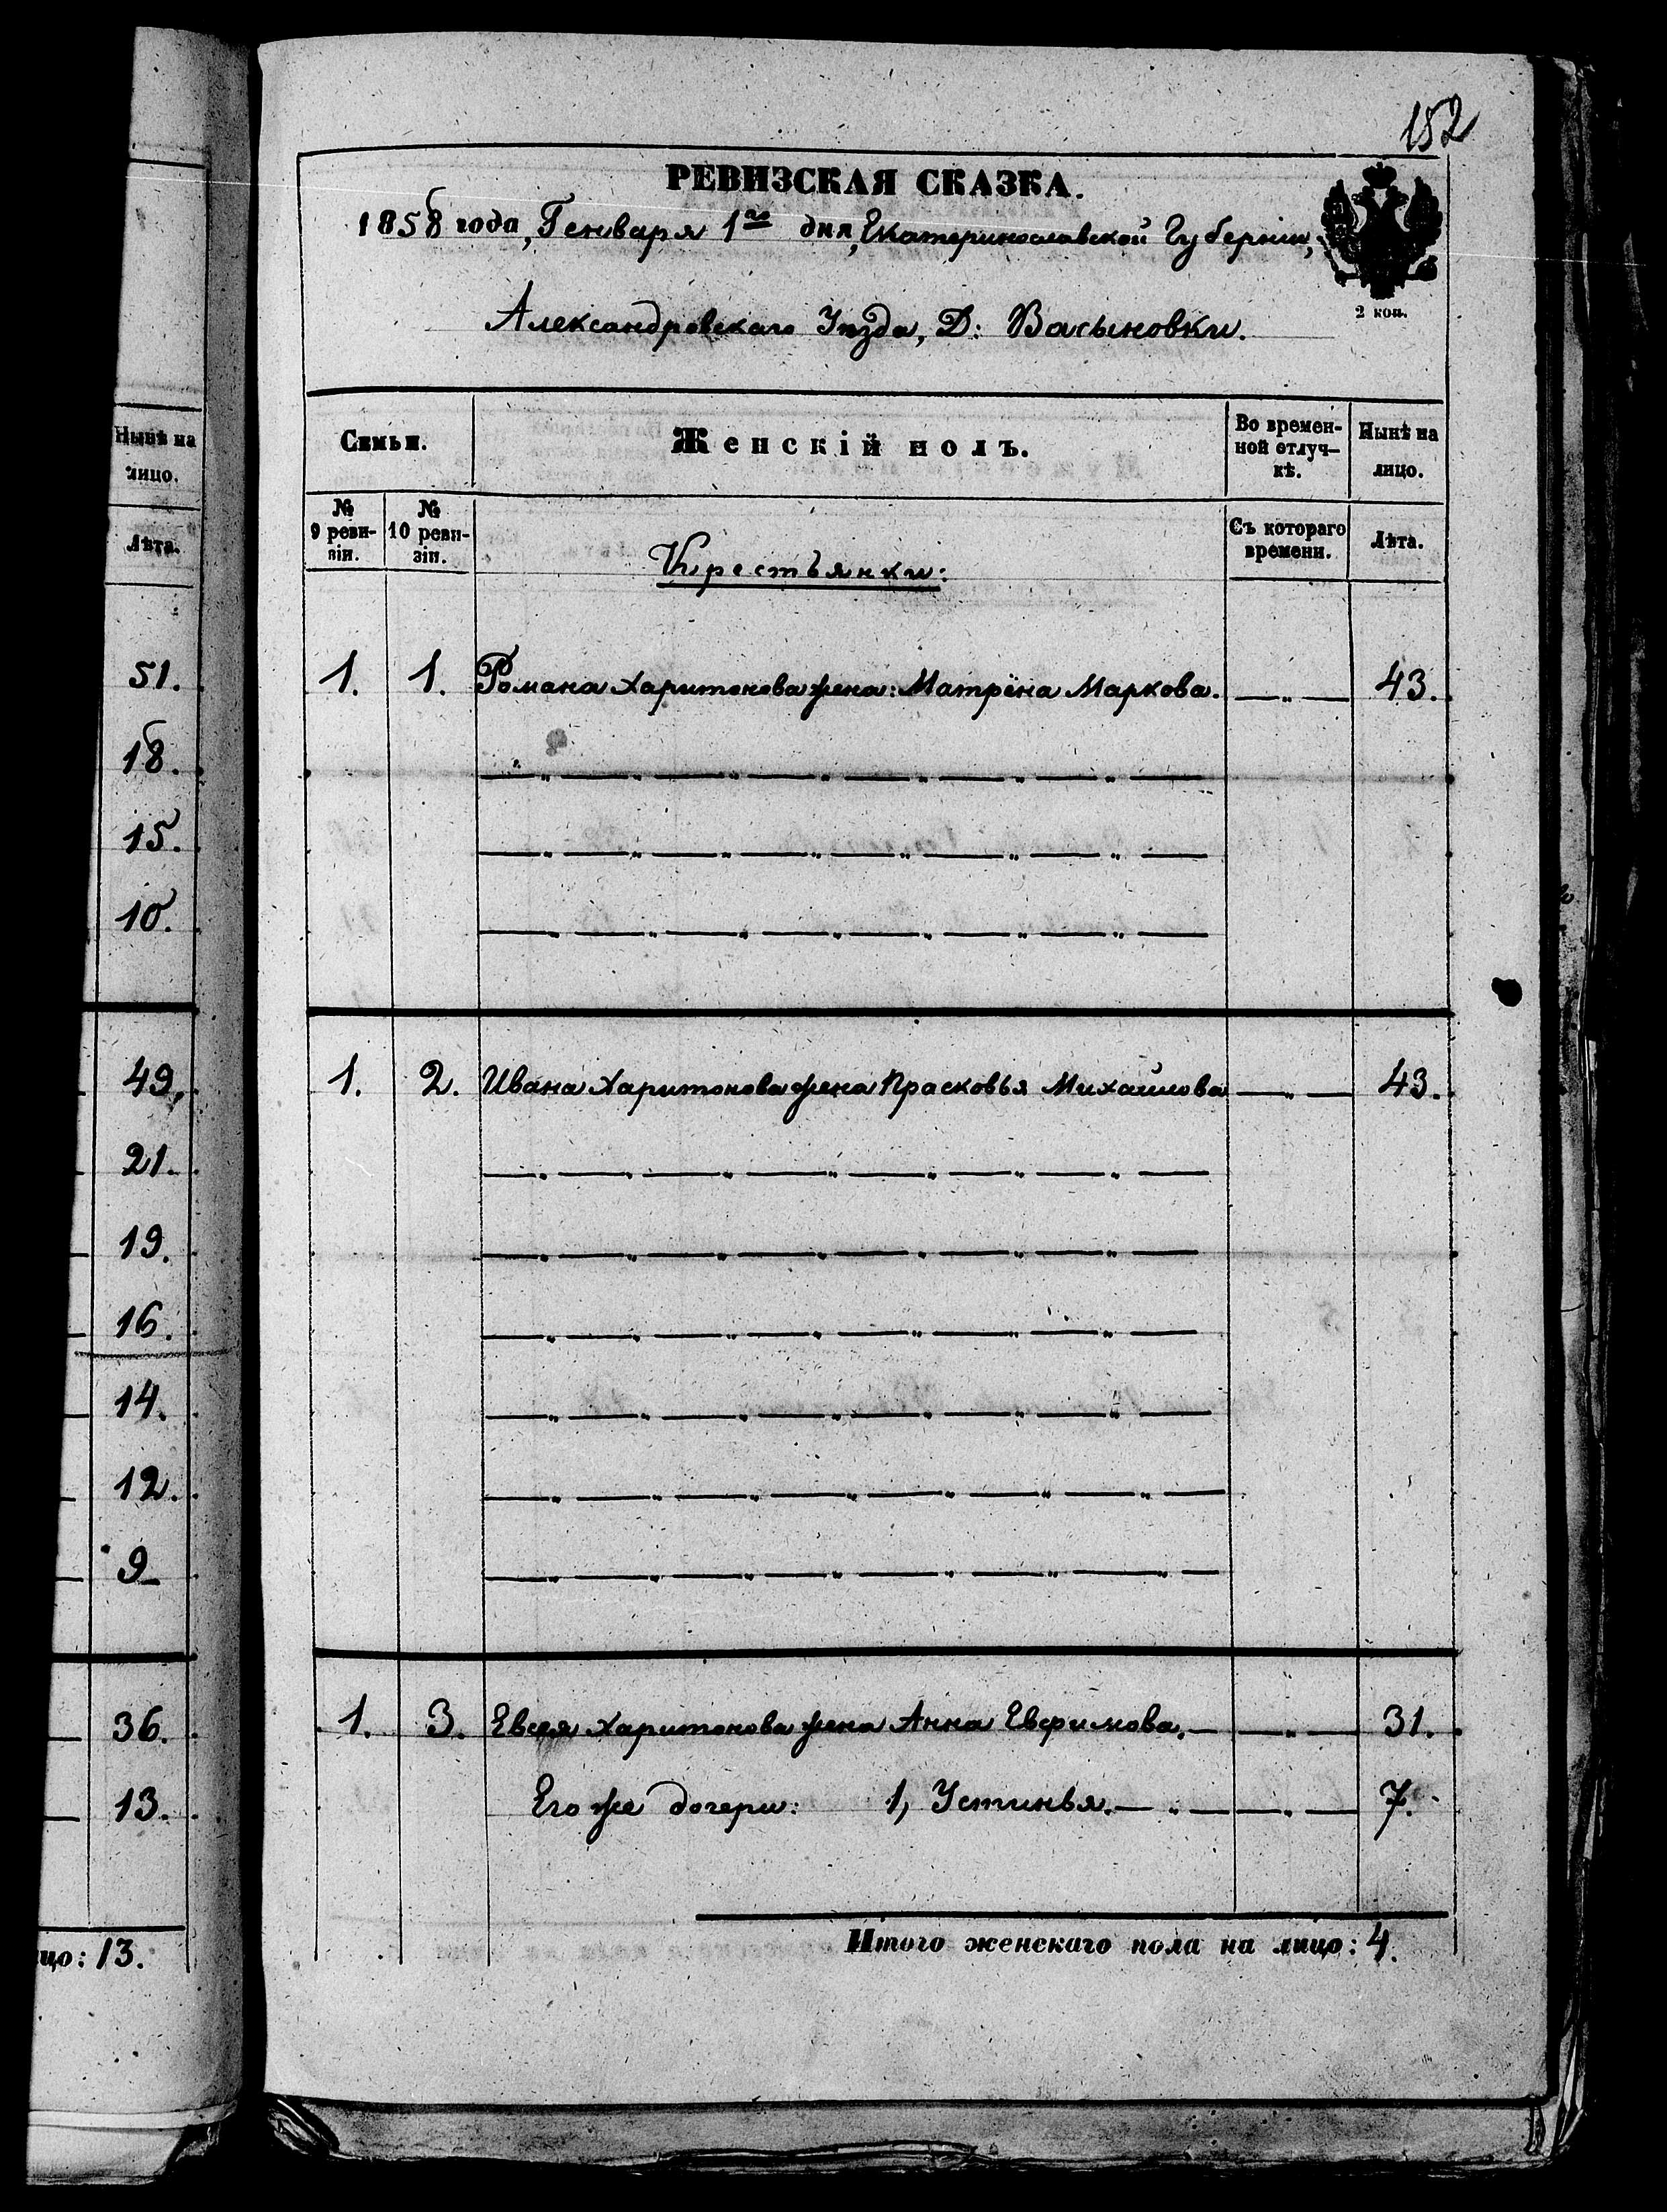 Нынѣ на
лицо.
Лѣта.
51.
18.
15.
10.
49.
21.
19.
16.
14.
12.
9
36.
13.
цо: 13.
152
РЕВИЗСКАЯ СКАЗКА.
1858 года, Генваря 1го дня, Екатеринославской Губерніи,
2 коп.
Александровскаго Уѣзда, Д: Васыновки.
Семьи.
Женскій полъ.
Во времен-
ной отлуч-
кѣ.
Нынѣ на
лицо.
№
9 реви-
зіи.
№
10 реви-
зіи.
Съ котораго
времени.
Лѣта.
Крестьянки:
1. 1. Романа Харитонова жена: Матрёна Маркова. —„— 43.
—„—„—„—„—„—„—„—
—„—„—„—„—„—„—„—
—„—„—„—„—„—„—„—
1. 2. Ивана Харитонова жена Прасковья Михайлова —„— 43.
—„—„—„—„—„—„—„—
—„—„—„—„—„—„—„—
—„—„—„—„—„—„—„—
—„—„—„—„—„—„—„—
—„—„—„—„—„—„—„—
—„—„—„—„—„—„—
1. 3. Евсея Харитонова жена Анна Евфимова. — —„— 31.
Его же дочери: 1, Устинья. —„— —„— 7.
Итого женскаго пола на лицо: 4.